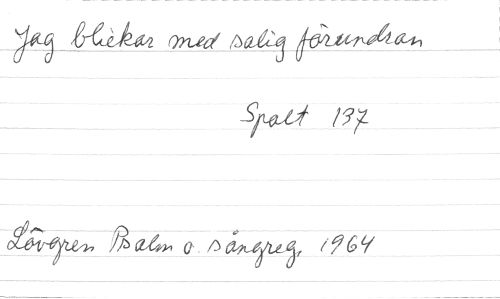 Jag blickar med salig förundran
Spalt 137
Lövgren Psalm o. sångreg. 1964